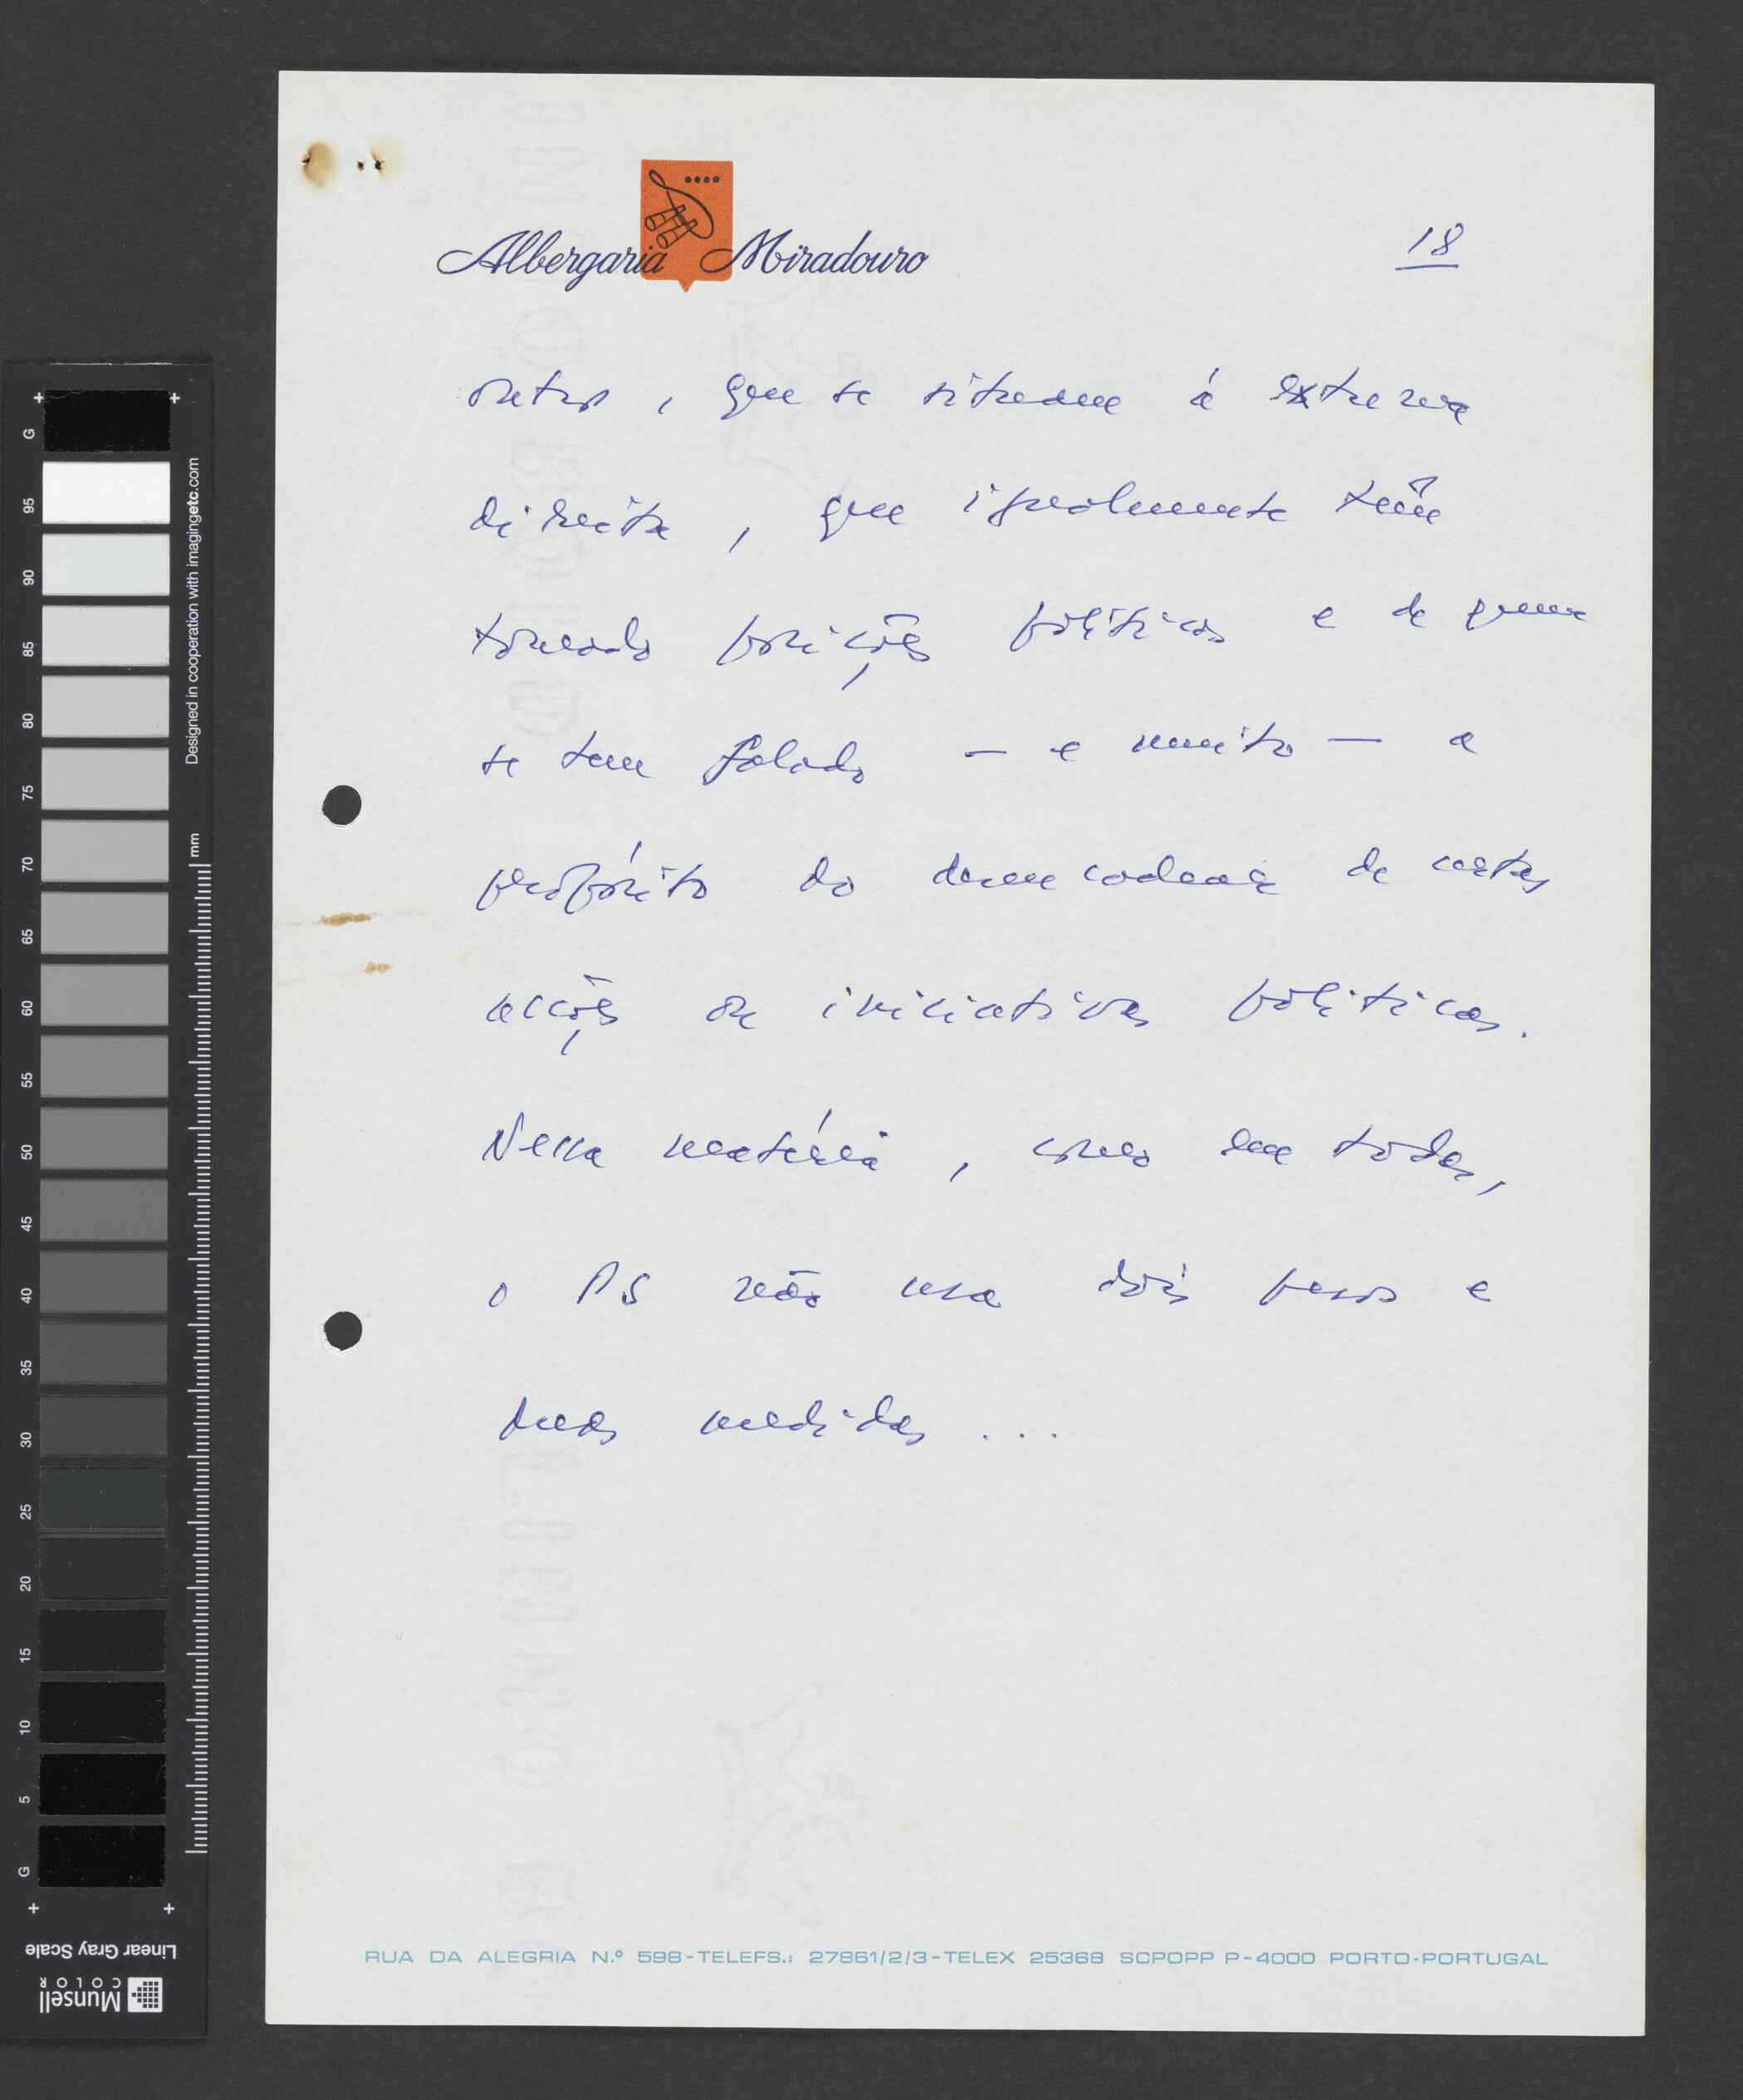 Albergaria Miradouro
18
outros, que se situam á extrema
direita, que igualmente têm
tomado posições políticas e de quem
se tem falado — e muito — a
propósito do desencadear de certas
acções ou iniciativas politicas.
Nessa matéria, como em todas,
o PS não usa dois pesos e
duas medidas...
RUA DA ALEGRIA N.º 598-TELEFS.: 27861/2/3-TELEX 25368 SCPOPP P-4000 PORTO-PORTUGAL
G
95
90
85
80
75
70
65
60
55
50
45
40
35
30
25
20
15
10
5
G
mm
Designed in cooperation with imagingetc.com
Linear Gray Scale
Munsell
COLOR